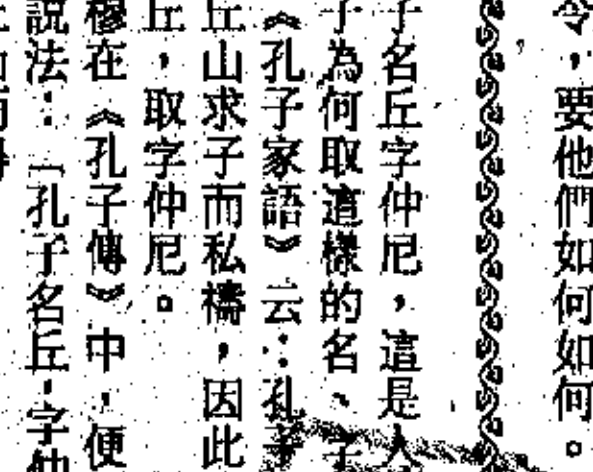 令，要他們如何如何。
子名丘字仲尼，這是人
子為何取這樣的名、字
《孔子家語》云：孔子
丘山求子而私禱，因此
丘，取字仲尼。
穆在《孔子傳》中，便
說法：「孔子名丘，字仲